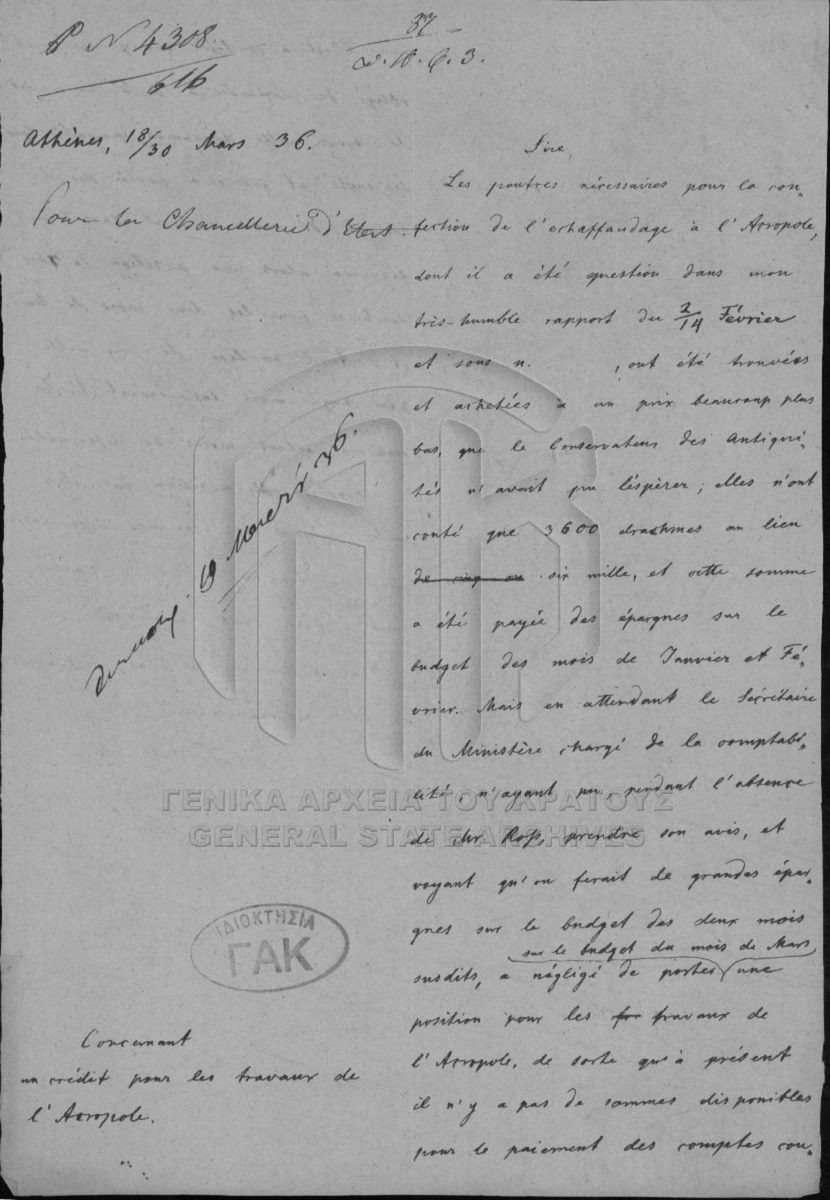 P N 4308
616
37
Athènes, 18/30 Mars 36.
Pour la Chancellerie d'Etat.
19 36.
Concernant
un crédit pour les travaux de
l'Acropole.
Sire,
Les poutres nécessaires pour la con-
fection de l'echaffaudage à l'Acropole,
dont il a été question dans mon
très-humble rapport du 2/14 Février
et sous n. , ont été trouvées
et achetées à un prix beaucoup plus
bas, que le Conservateur des Antiqui-
tés n'avait pu l'éspèrer; elles n'ont
couté que 3600 drachmes au lieu
de cinq ou six mille, et cette somme
a été payée des épargnes sur le
budget des mois de Janvier et Fé-
vrier. Mais en attendant le Sécrétaire
du Ministère chargé de la comptabi-
lité, n'ayant pu pendant l'absence
de Mr Roſs, prendre son avis, et
voyant qu'on ferait de grandes épar-
gnes sur le budget des deux mois
sur le budget du mois de Mars
susdits, a négligé de porter une
position pour les travaux de
l'Acropole, de sorte qu'à présent
il n'y a pas de sommes disponibles
pour le paiement des comptes cou-
ΓΕΝΙΚΑ ΑΡΧΕΙΑ ΤΟΥ ΚΡΑΤΟΥΣ
GENERAL STATE ARCHIVES
ΙΔΙΟΚΤΗΣΙΑ
ΓΑΚ